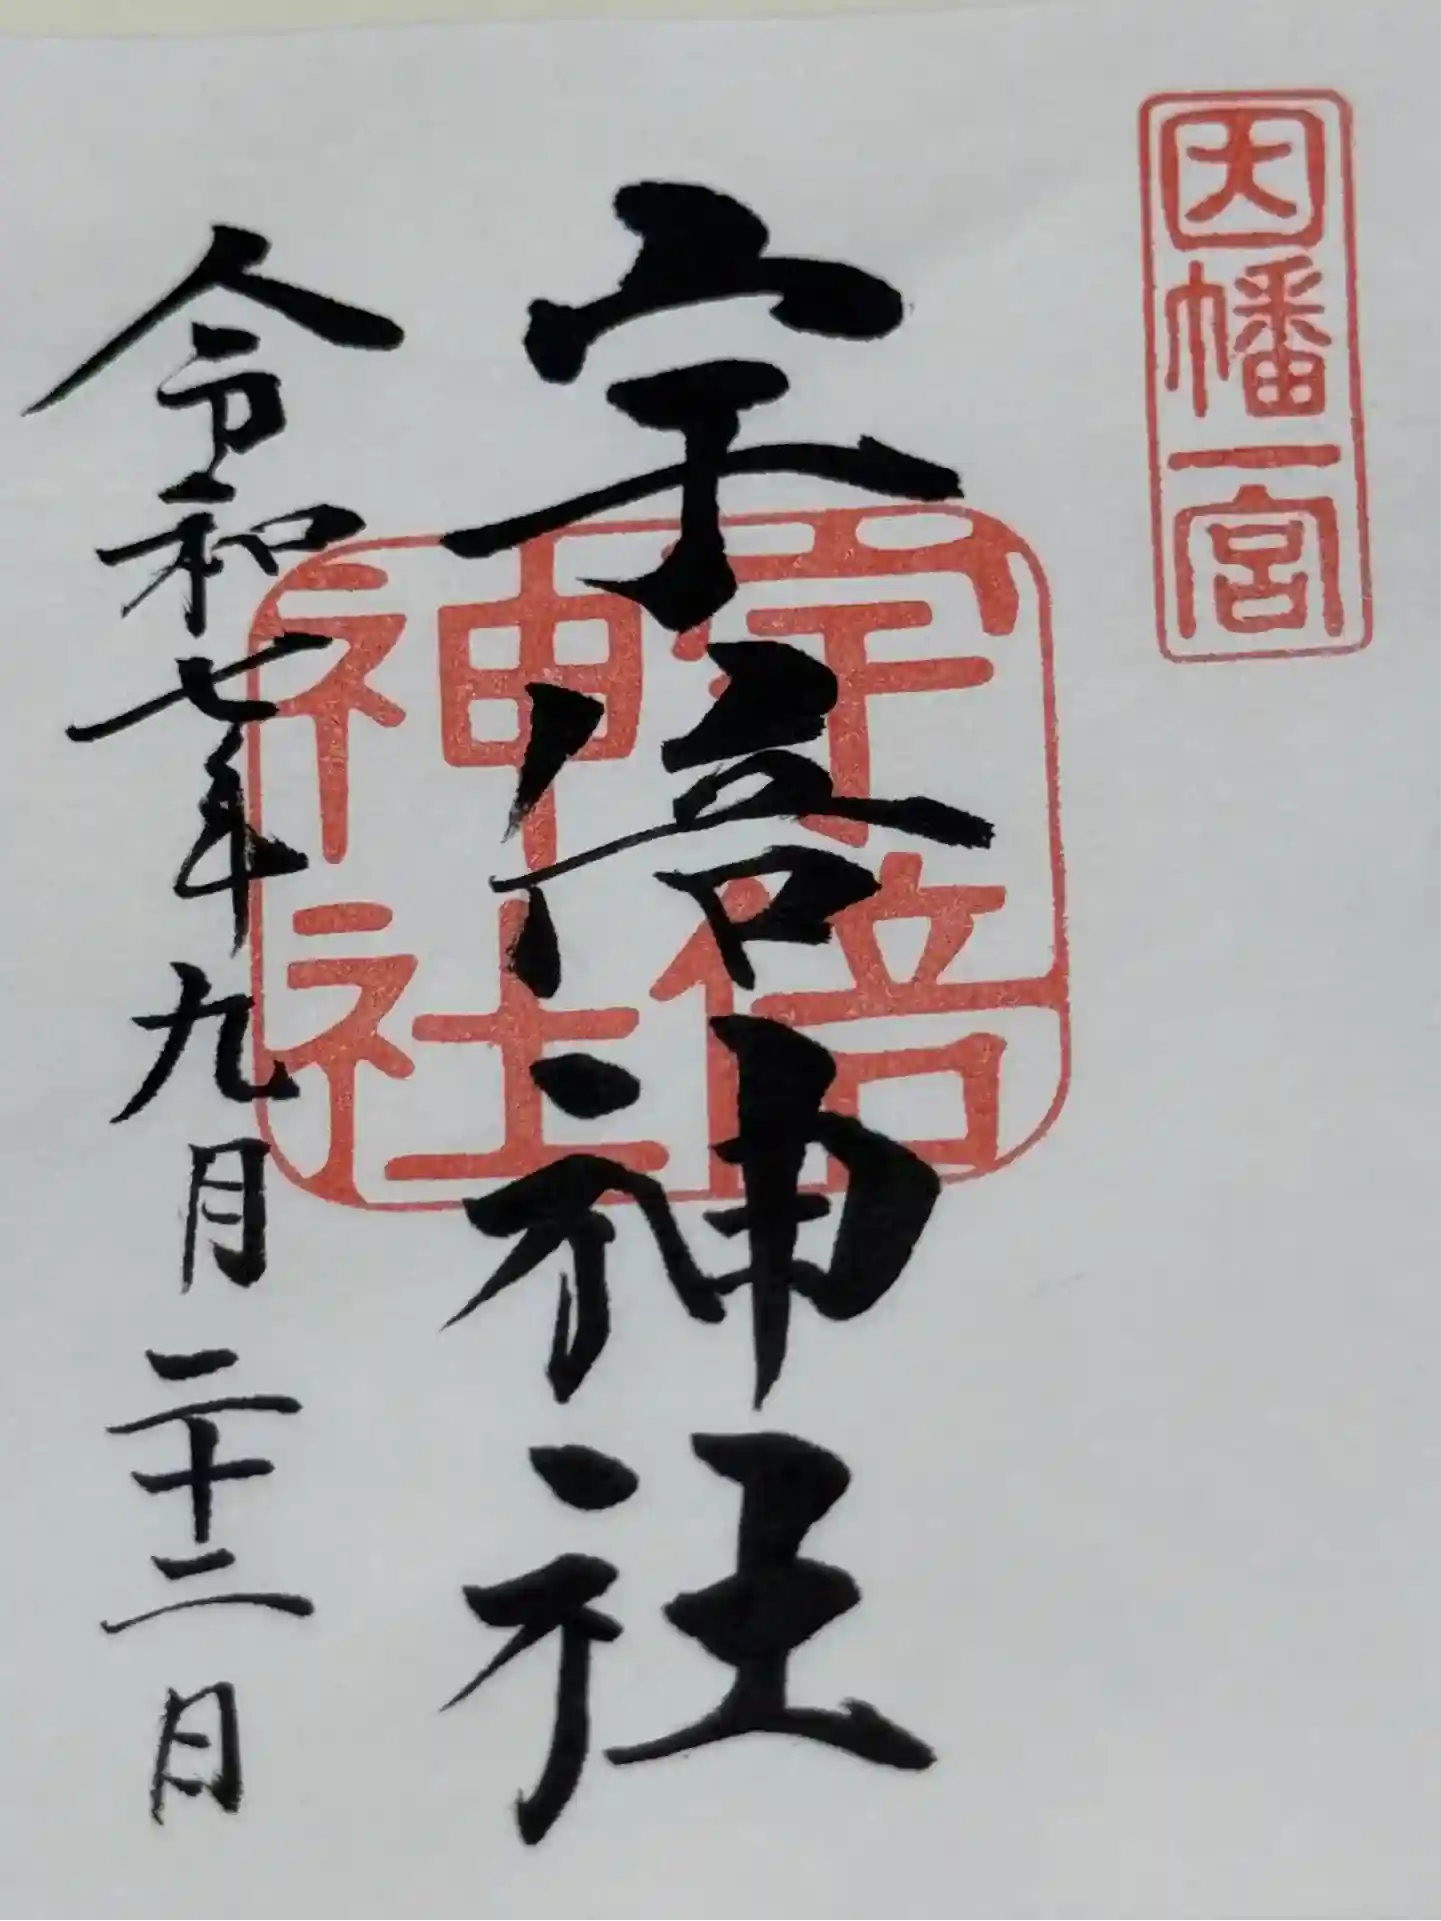 因幡一宮
宇倍神社
宇倍
神社
令和七年九月二十二日